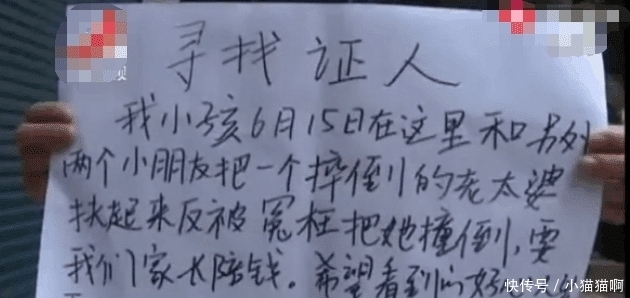 寻找证人
我小孩6月15日在这里和另外
两个小朋友把一个摔倒的老太婆
扶起来反被冤枉把她撞倒,要
我们家长陪钱。希望看到的好
快传号/小猫猫啊